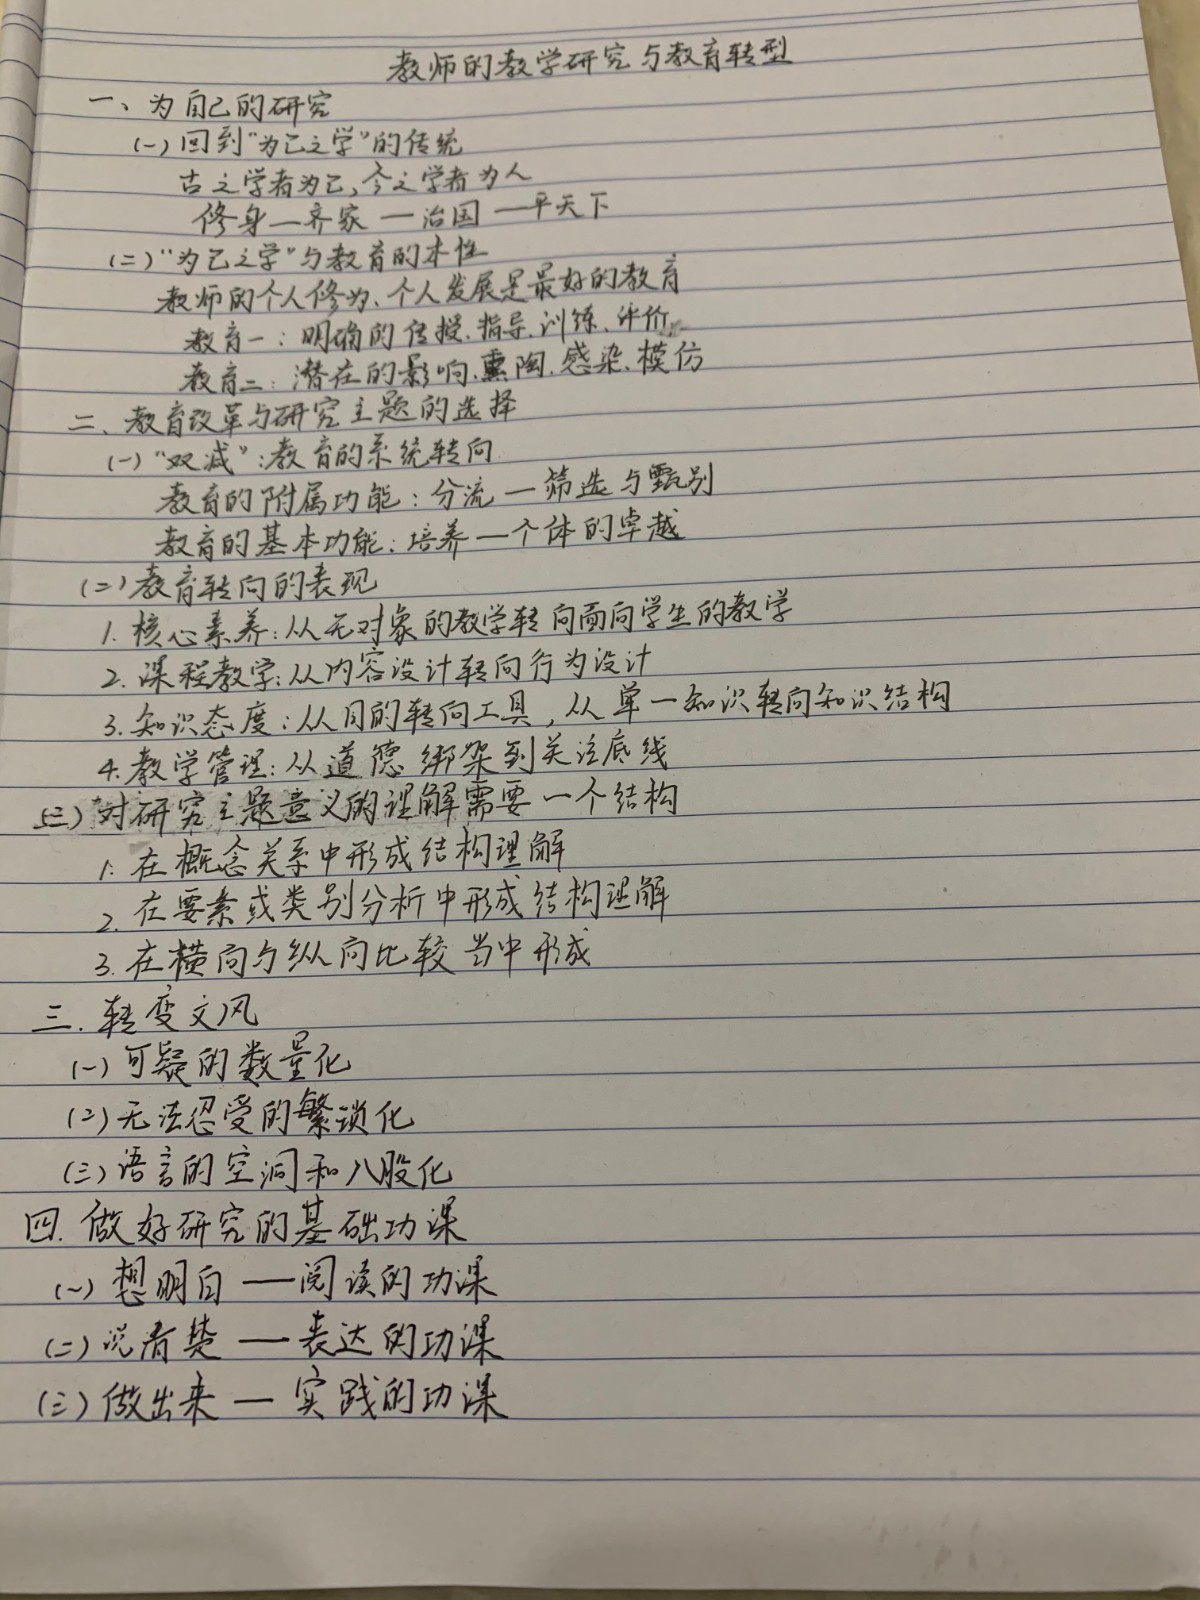 教师的教学研究与教育转型
一、为自己的研究
(一)回到“为己之学”的传统
古之学者为己,今之学者为人
修身—齐家—治国—平天下
(二)“为己之学”与教育的本性
教师的个人修为、个人发展是最好的教育
教育一:明确的传授、指导、训练、评价
教育二:潜在的影响、熏陶、感染、模仿
二、教育改革与研究主题的选择
(一)“双减”:教育的系统转向
教育的附属功能:分流—筛选与甄别
教育的基本功能:培养—个体的卓越
(二)教育转向的表现
1.核心素养:从无对象的教学转向面向学生的教学
2.课程教学:从内容设计转向行为设计
3.知识态度:从目的转向工具,从单一知识转向知识结构
4.教学管理:从道德绑架到关注底线
(三)对研究主题意义的理解需要一个结构
1.在概念关系中形成结构理解
2.在要素或类别分析中形成结构理解
3.在横向与纵向比较当中形成
三.转变文风
(一)可疑的数量化
(二)无法忍受的繁琐化
(三)语言的空洞和八股化
四.做好研究的基础功课
(一)想明白——阅读的功课
(二)说清楚——表达的功课
(三)做出来—实践的功课